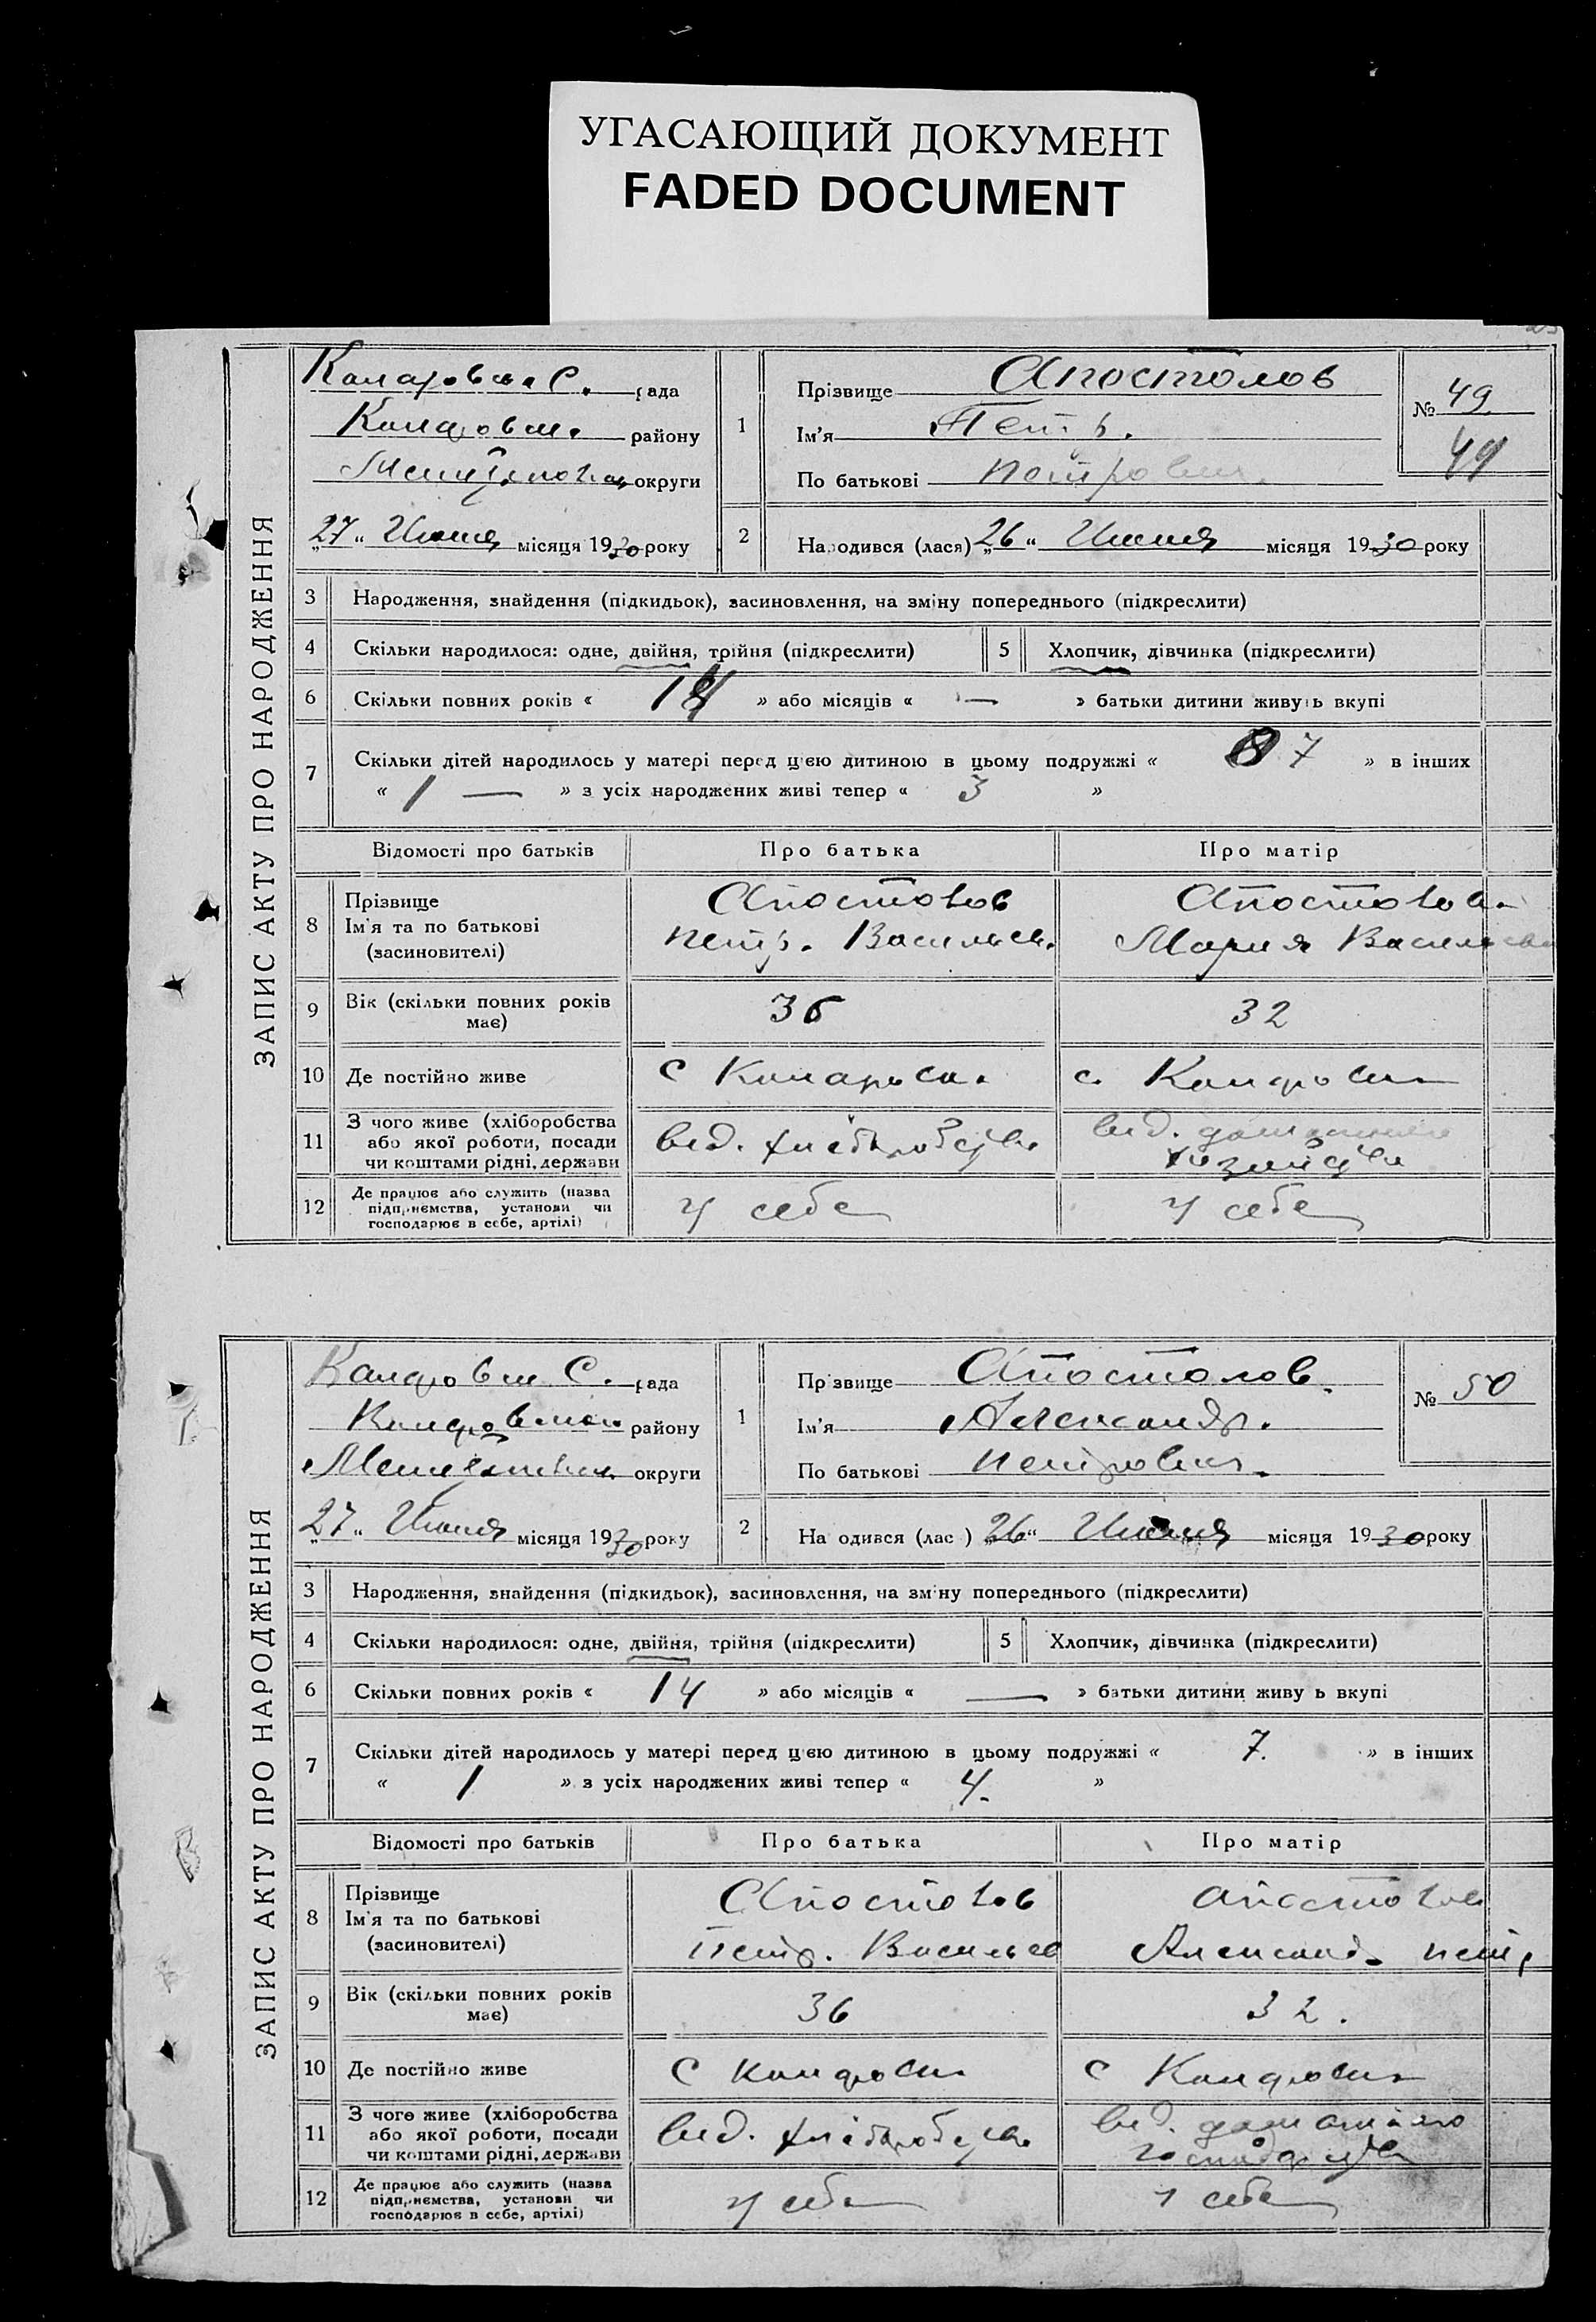 УГАСАЮЩИЙ ДОКУМЕНТ
FADED DOCUMENT
ЗАПИС АКТУ ПРО НАРОДЖЕННЯ
С. рада
району
округи
„27“ Июня місяця 1930 року
1
Прізвище Апостолов
Ім'я Петр.
По батькові Петрович.
№ 49
49
2
Народився (лася) „26“ Июня місяця 1930 року
3 Народження, знайдення (підкидьок), засиновлення, на зміну попереднього (підкреслити)
4 Скільки народилося: одне, двійня, трійня (підкреслити) 5 Хлопчик, дівчинка (підкреслити)
6 Скільки повних років « 14 » або місяців « — » батьки дитини живуть вкупі
7 Скільки дітей народилось у матері перед цією дитиною в цьому подружжі « 7 » в інших
« 1 — » з усіх народжених живі тепер « 3 »
Відомості про батьків Про батька Про матір
8 Прізвище
Ім'я та по батькові
(засновителі)
Апостолов
Петр. Васильев.
Апостолов.
Мария Василь
9 Вік (скільки повних років має) 36 32
10 Де постійно живе с с.
11 З чого живе (хліборобства
або якої роботи, посади
чи коштами рідні, держави
від. хліборобства
від.
12 Де працює або служить (назва
підприємства, установи чи
господарює в себе, артілі)
у себе у себе
ЗАПИС АКТУ ПРО НАРОДЖЕННЯ
С. рада
району
округи
„27“ Июня місяця 1930 року
1
Прізвище Апостолов.
Ім'я Александр.
По батькові Петрович.
№ 50
2
На одився (лас ) „26“ Июня місяця 1930 року
3 Народження, знайдення (підкидьок), засиновлення, на зміну попереднього (підкреслити)
4 Скільки народилося: одне, двійня, трійня (підкреслити) 5 Хлопчик, дівчинка (підкреслити)
6 Скільки повних років « 14 » або місяців « — » батьки дитини живу ь вкупі
7 Скільки дітей народилось у матері перед цією дитиною в цьому подружжі « 7. » в інших
« 1 » з усіх народжених живі тепер « 4. »
Відомості про батьків Про батька Про матір
8 Прізвище
Ім'я та по батькові
(засиновителі)
Апостолов
Петр. Васильев
Апостолов
Александ. Петр
9 Вік (скільки повних років має) 36 32.
10 Де постійно живе с с
11 З чого живе (хліборобства
або якої роботи, посади
чи коштами рідні, держави
від. хліборобства
від.
12 Де працює або служить (назва
підприємства, установи чи
господарює в себе, артілі)
у себе у себе